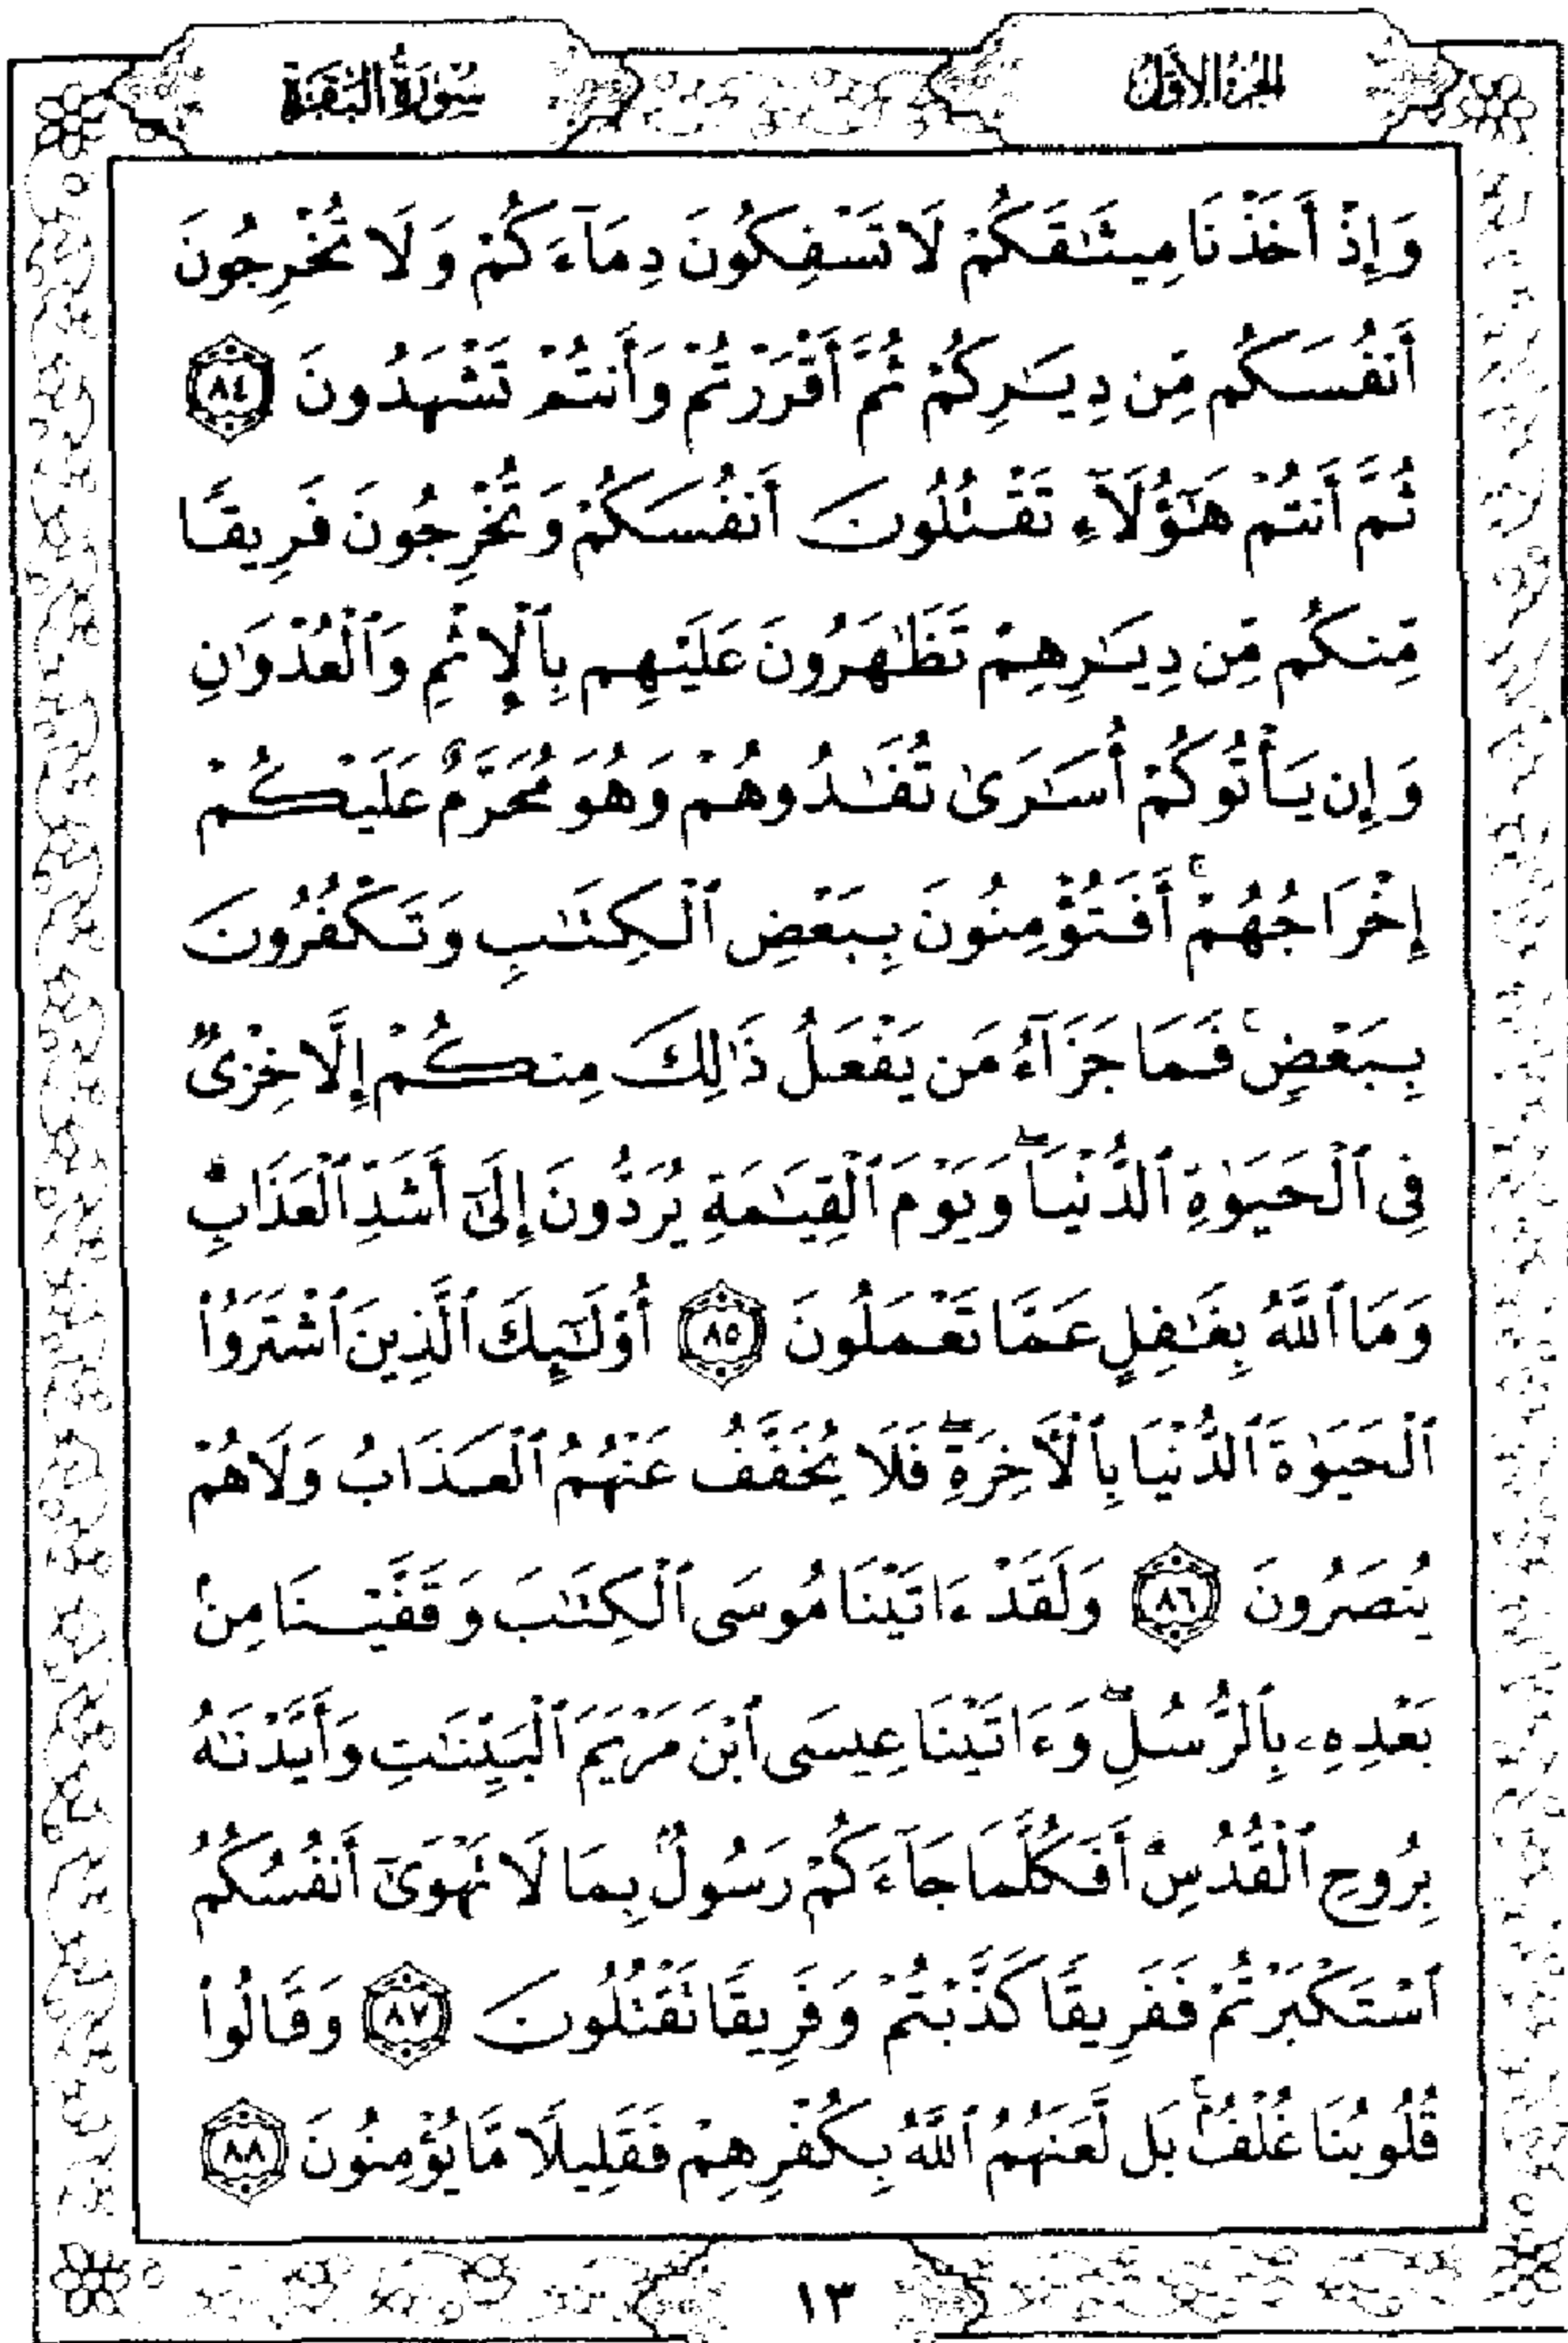 الجزء الأول
سورة البقرة
وَإِذْ أَخَذْنَا مِيثَٰقَكُمْ لَا تَسْفِكُونَ دِمَآءَكُمْ وَلَا تُخْرِجُونَ
أَنفُسَكُم مِّن دِيَٰرِكُمْ ثُمَّ أَقْرَرْتُمْ وَأَنتُمْ تَشْهَدُونَ ٨٤
ثُمَّ أَنتُمْ هَٰٓؤُلَآءِ تَقْتُلُونَ أَنفُسَكُمْ وَتُخْرِجُونَ فَرِيقًا
مِّنكُم مِّن دِيَٰرِهِمْ تَظَٰهَرُونَ عَلَيْهِم بِٱلْإِثْمِ وَٱلْعُدْوَٰنِ
وَإِن يَأْتُوكُمْ أُسَٰرَىٰ تُفَٰدُوهُمْ وَهُوَ مُحَرَّمٌ عَلَيْكُمْ
إِخْرَاجُهُمْ ۚ أَفَتُؤْمِنُونَ بِبَعْضِ ٱلْكِتَٰبِ وَتَكْفُرُونَ
بِبَعْضٍ ۚ فَمَا جَزَآءُ مَن يَفْعَلُ ذَٰلِكَ مِنكُمْ إِلَّا خِزْىٌ
فِى ٱلْحَيَوٰةِ ٱلدُّنْيَا ۖ وَيَوْمَ ٱلْقِيَٰمَةِ يُرَدُّونَ إِلَىٰٓ أَشَدِّ ٱلْعَذَابِ ۗ
وَمَا ٱللَّهُ بِغَٰفِلٍ عَمَّا تَعْمَلُونَ ٨٥ أُو۟لَٰٓئِكَ ٱلَّذِينَ ٱشْتَرَوُا۟
ٱلْحَيَوٰةَ ٱلدُّنْيَا بِٱلْأَخِرَةِ ۖ فَلَا يُخَفَّفُ عَنْهُمُ ٱلْعَذَابُ وَلَا هُمْ
يُنصَرُونَ ٨٦ وَلَقَدْ ءَاتَيْنَا مُوسَى ٱلْكِتَٰبَ وَقَفَّيْنَا مِنۢ
بَعْدِهِۦ بِٱلرُّسُلِ ۖ وَءَاتَيْنَا عِيسَى ٱبْنَ مَرْيَمَ ٱلْبَيِّنَٰتِ وَأَيَّدْنَٰهُ
بِرُوحِ ٱلْقُدُسِ ۗ أَفَكُلَّمَا جَآءَكُمْ رَسُولٌۢ بِمَا لَا تَهْوَىٰٓ أَنفُسُكُمُ
ٱسْتَكْبَرْتُمْ فَفَرِيقًا كَذَّبْتُمْ وَفَرِيقًا تَقْتُلُونَ ٨٧ وَقَالُوا۟
قُلُوبُنَا غُلْفٌۢ ۚ بَل لَّعَنَهُمُ ٱللَّهُ بِكُفْرِهِمْ فَقَلِيلًا مَّا يُؤْمِنُونَ ٨٨
١٣